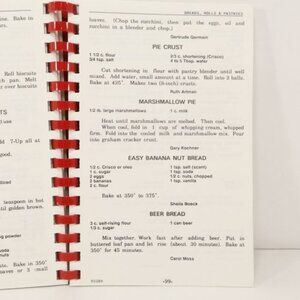 BREADS, ROLLS & PASTRIES
leaves. (Chop the zucchini, then put the eggs, oil and
zucchini in a blender and chop.)
Gertrude Germain
PIE CRUST
1 1/2 c. flour
3/4 tsp. salt
2/3 c. shortening (Crisco)
4 to 5 Tbsp. water
Cut shortening in flour with pastry blender until well
mixed. Add water, small amount at a time. Roll into 2 balls.
Bake at 425°. Makes two (8-inch) crusts.
Ruth Artman
MARSHMALLOW PIE
1/2 lb. large marshmallows
1 c. milk
Heat until marshmallows are melted. Then cool.
When cool, fold in 1 cup of whipping cream, whipped
firm. Fold into the cooled milk and marshmallow mix. Pour
into graham cracker crust.
Gary Kochner
EASY BANANA NUT BREAD
1/2 c. Crisco or oleo
1 c. sugar
2 eggs
3 bananas
2 c. flour
1 tsp. salt (scant)
1 tsp. soda
1/2 c. nuts, chopped
1 tsp. vanilla
Bake at 350° to 375°.
Sheila Boeck
BEER BREAD
3 c. self-rising flour
1/3 c. sugar
1 can beer
Mix together. Work fast after adding beer. Put in
buttered loaf pan and let rise (about 30 minutes). Bake at
350° for 45 minutes.
Carol Moss
-99-
ine. Bake in
Roll biscuits
ch pan. Melt
on biscuits
TS
add 7-Up all at
teaspoon in hot
until golden brown.
powder
soda
nuts
Bake in 350°